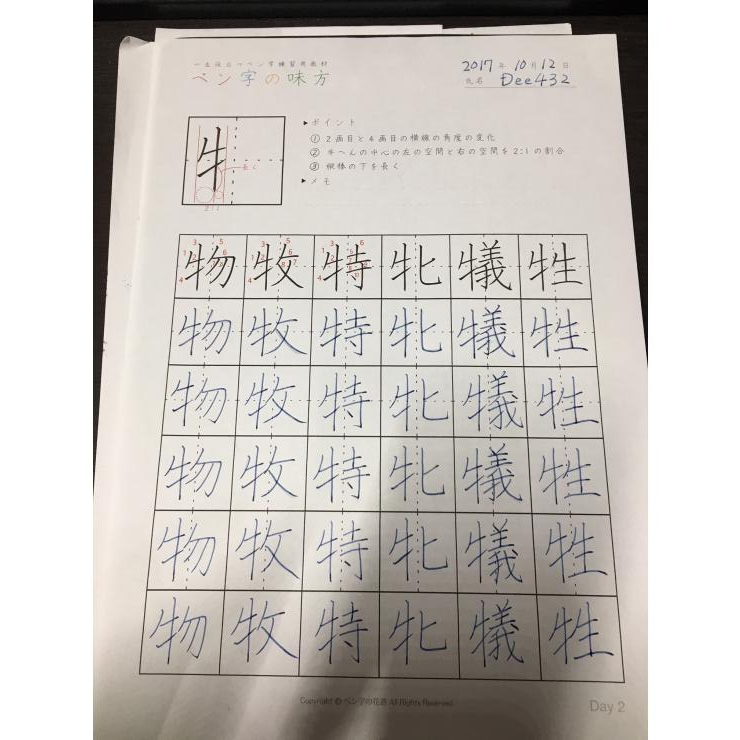 一点設計のペン字練習用教材
ペン字の味方
2017年10月12日
氏名 Dee432
牛
長く
2:1
▶ポイント
① 2画目と4画目の横線の角度の変化
② 牛へんの中心の左の空間と右の空間を2:1の割合
③ 縦棒の下を長く
▶メモ
物 牧 特 牝 犠 牲
物 牧 特 牝 犠 牲
物 牧 特 牝 犠 牲
物 牧 特 牝 犠 牲
物 牧 特 牝 犠 牲
物 牧 特 牝 犠 牲
Copyright © ペン字の花道 All Rights Reserved.
Day 2